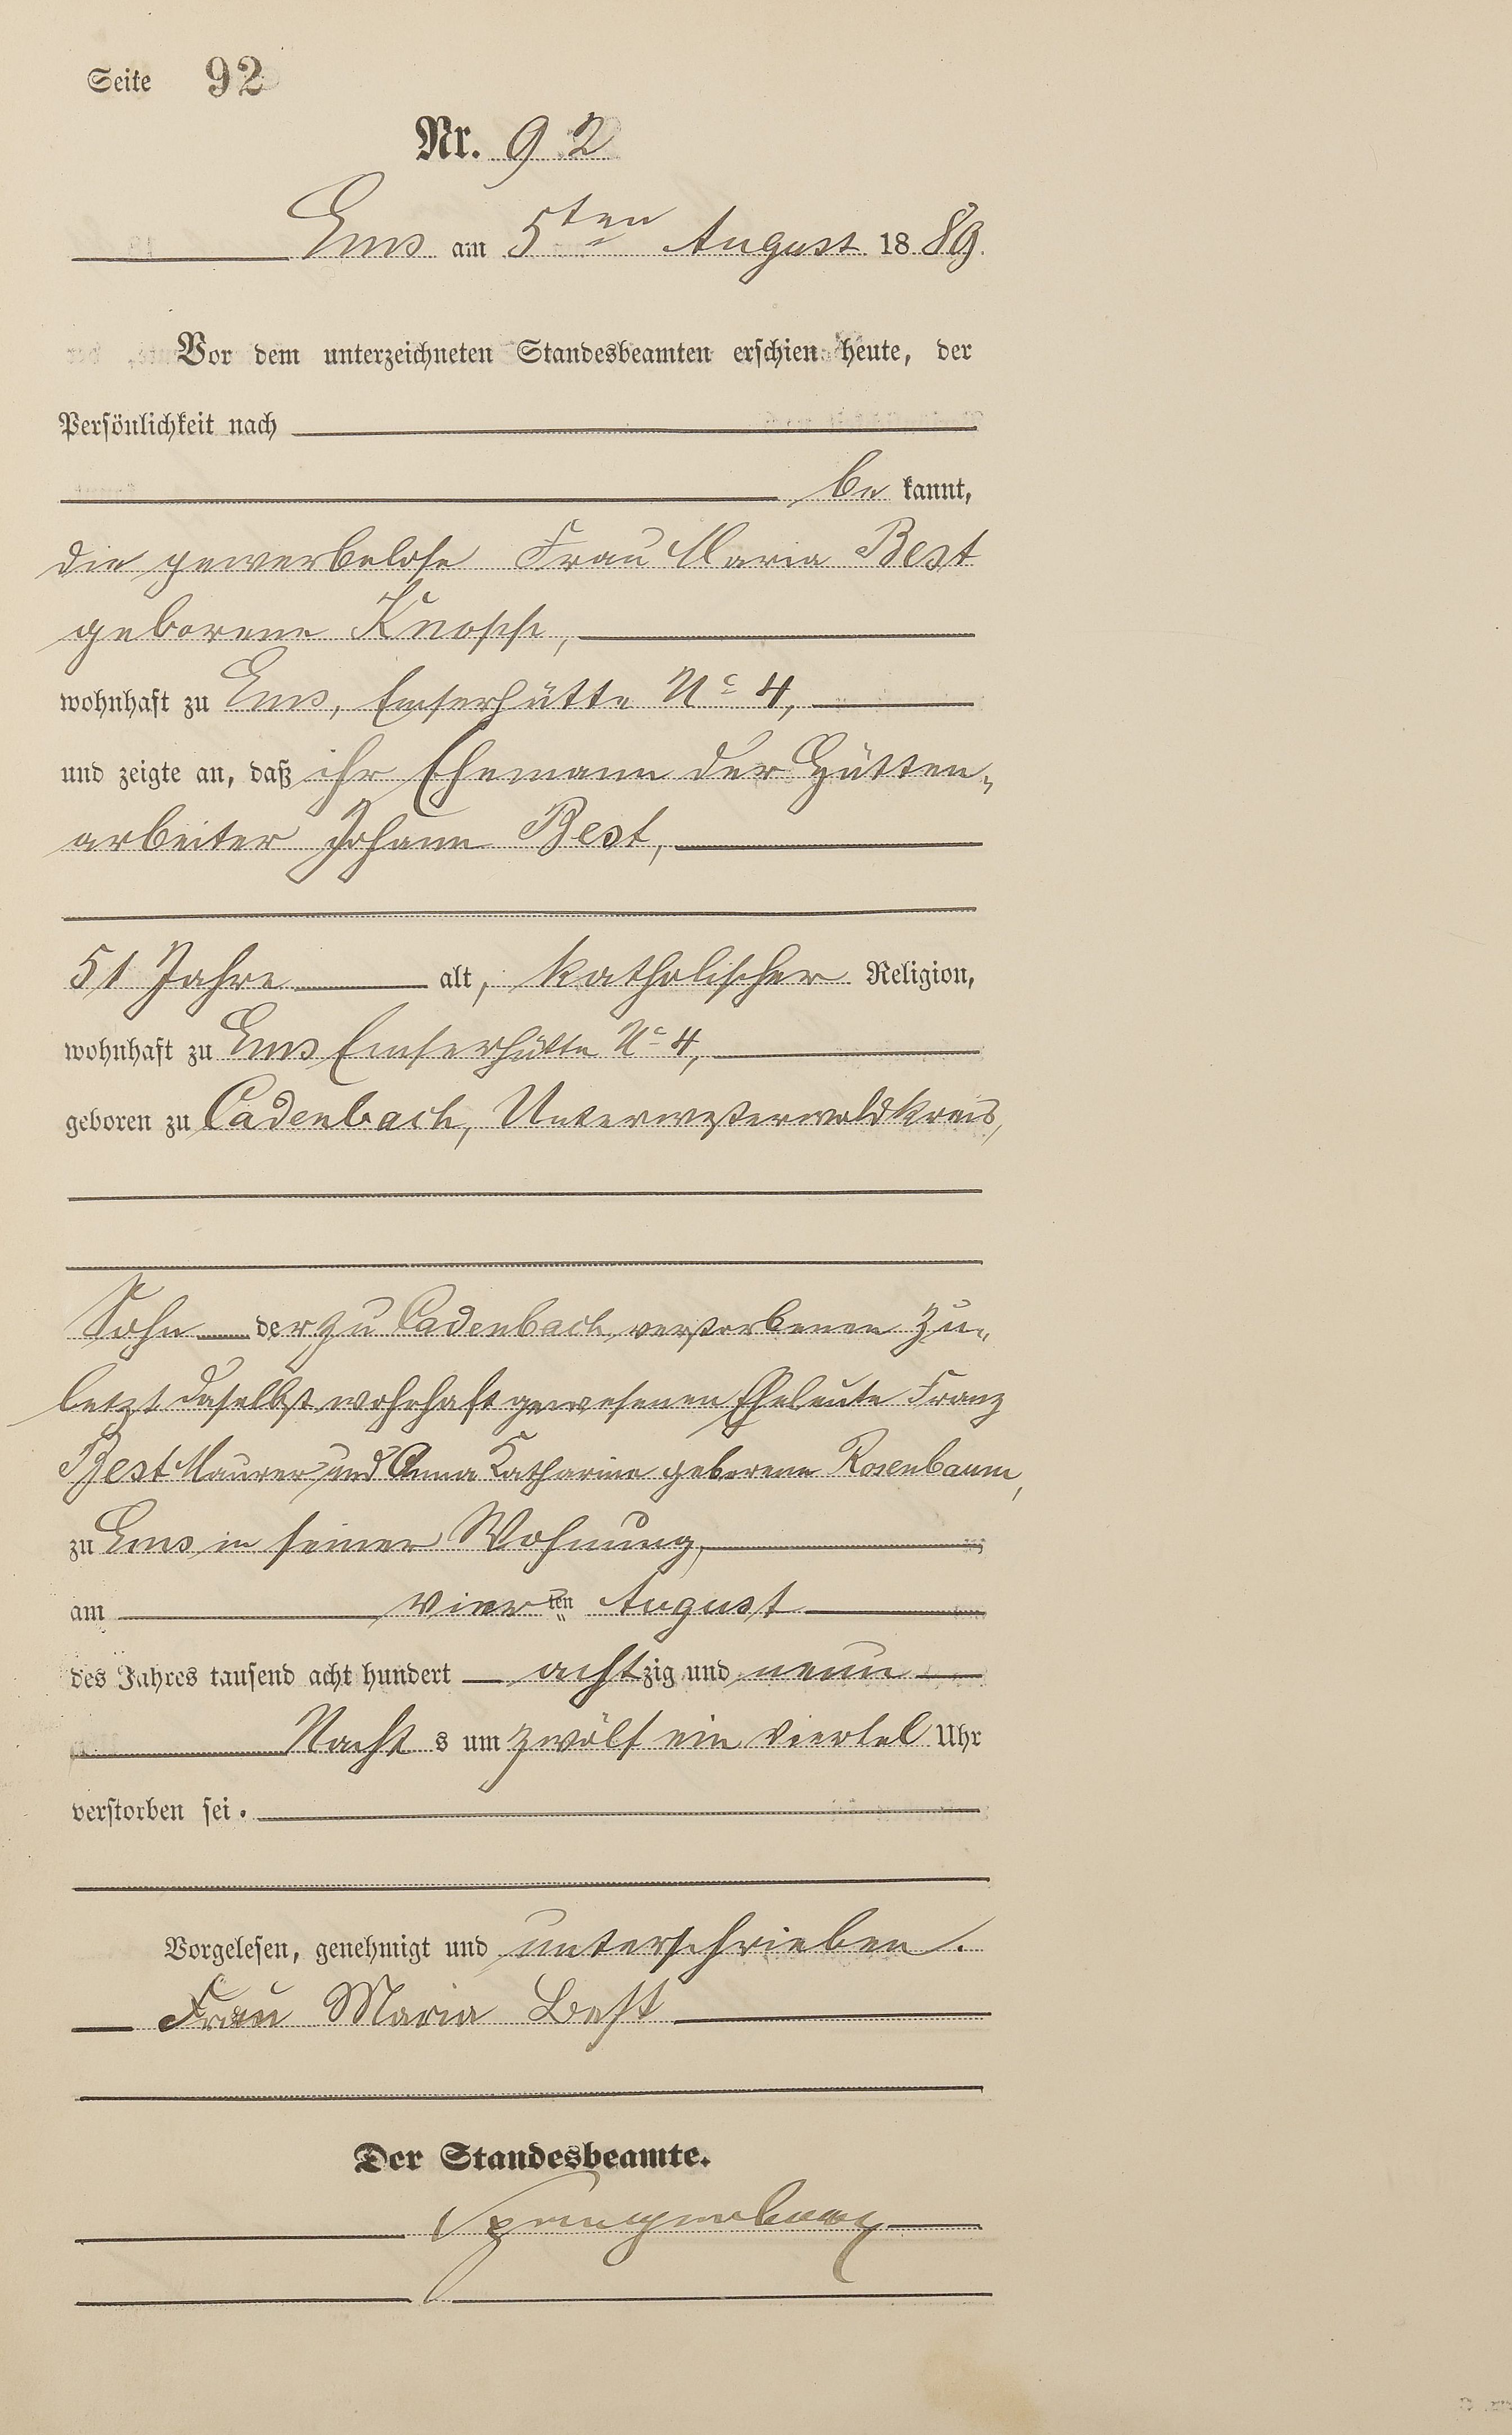 Seite 92
Nr. 92
Ems am 5ten August 1889.
Vor dem unterzeichneten Standesbeamten erschien heute, der
Persönlichkeit nach
be kannt,
die gewerbelose Frau Maria Best
geborene Knopp,
wohnhaft zu Ems, Emserhütte No 4,
und zeigte an, daß ihr Ehemann der Hütten-
arbeiter Johann Best,
51 Jahre alt, katholischer Religion,
wohnhaft zu Ems Emserhütte No 4,
geboren zu Cadenbach, Unterwesterwaldkreis,
Sohn der zu Cadenbach verstorbenen zu-
letzt daselbst wohnhaft gewesenen Eheleute Franz
Best Maurer und Anna Katharine geborene Rosenbaum,
zu Ems in seiner Wohnung,
am vierten August
des Jahres tausend acht hundert achtzig und neun
Nachts um zwölf ein viertel Uhr
verstorben sei.
Vorgelesen, genehmigt und unterschrieben.
Frau Maria Best
Der Standesbeamte.